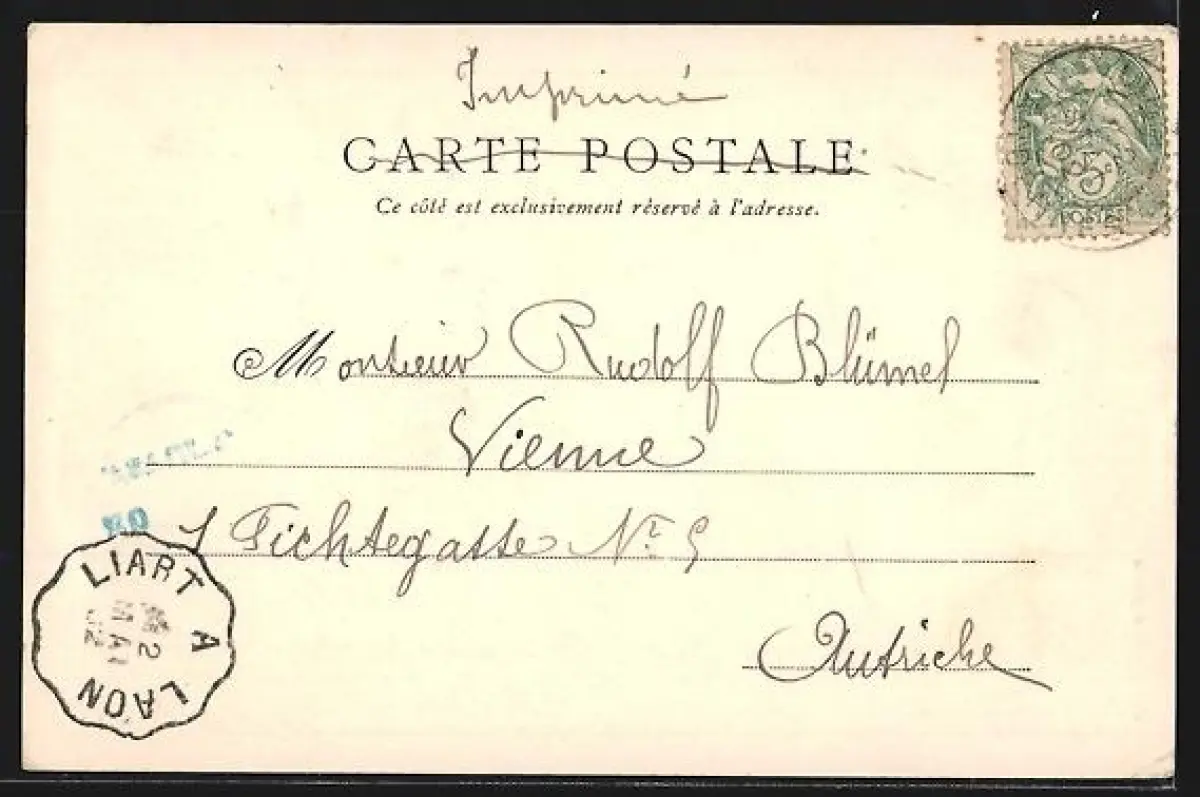 Imprimé
CARTE POSTALE
Ce côté est exclusivement réservé à l'adresse.
5
POSTES
Monsieur Rudolf Blümel
Vienne
1 Fichtegasse Nr. 5
Autriche
LIART A LAON
2
MAI
02